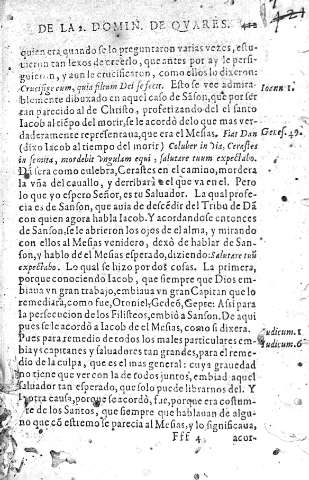 DE LA 2. DOMIN. DE QVARES.
quien era quando se lo preguntaron varias vezes, estu-
uieron tan lexos de creerlo, que antes por ay le persi-
guieron, y aun le crucificaron, como ellos lo dixeron:
Crucifige eum, quia filium Dei se fecit. Esto se vee admira-
blemente dibuxado en aquel caso de Sãson, que por ser
tan parecido al de Christo, profetizando del el santo
Iacob al tiẽpo del morir, se le acordò de lo que mas ver-
daderamente representaua, que era el Mesias. Fiat Dan
(dixo Iacob al tiempo del morir) Coluber in via, Cerastes
in semita, mordebit vngulam equi, salutare tuum expectabo.
Dã sera como culebra, Cerastes en el camino, mordera
la vña del cauallo, y derribarà el que va en el. Pero
lo que yo espero Señor, es tu Saluador. La qual profe-
cia es de Sanson, que auia de descẽdir del Tribu de Dã
con quien agora habla Iacob. Y acordandose entonces
de Sanson, se le abrieron los ojos de el alma, y mirando
con ellos al Mesias venidero, dexò de hablar de San-
son, y hablo de el Mesias esperado, diziendo: Salutare tuũ
expectabo. Lo qual se hizo por dos cosas. La primera,
porque conociendo Iacob, que siempre que Dios em-
biaua vn gran trabajo, embiaua vn gran Capitan que lo
remediara, como fue, Otoniel, Gedeõ, Gepte: Assi para
la persecucion de los Filisteos, embiò a Sanson. De aqui
pues se le acordò a Iacob de el Mesias, como si dixera.
Pues para remedio de todos los males particulares em-
bia ys capitanes y saluadores tan grandes, para el reme-
dio de la culpa, que es el mas general: cuya grauedad
no tiene que ver con la de todos juntos, embiad aquel
saluador tan esperado, que solo puede librarnos del. Y
la otra causa, porque se acordò, fue, porque era costum-
bre de los Santos, que siempre que hablauan de algu-
no que cõ estremo se parecia al Mesias, y lo significaua,
Fff 4 acor-
Ioan. 1.
Genes. 49.
Iudicum. 1
Iudicum. 6